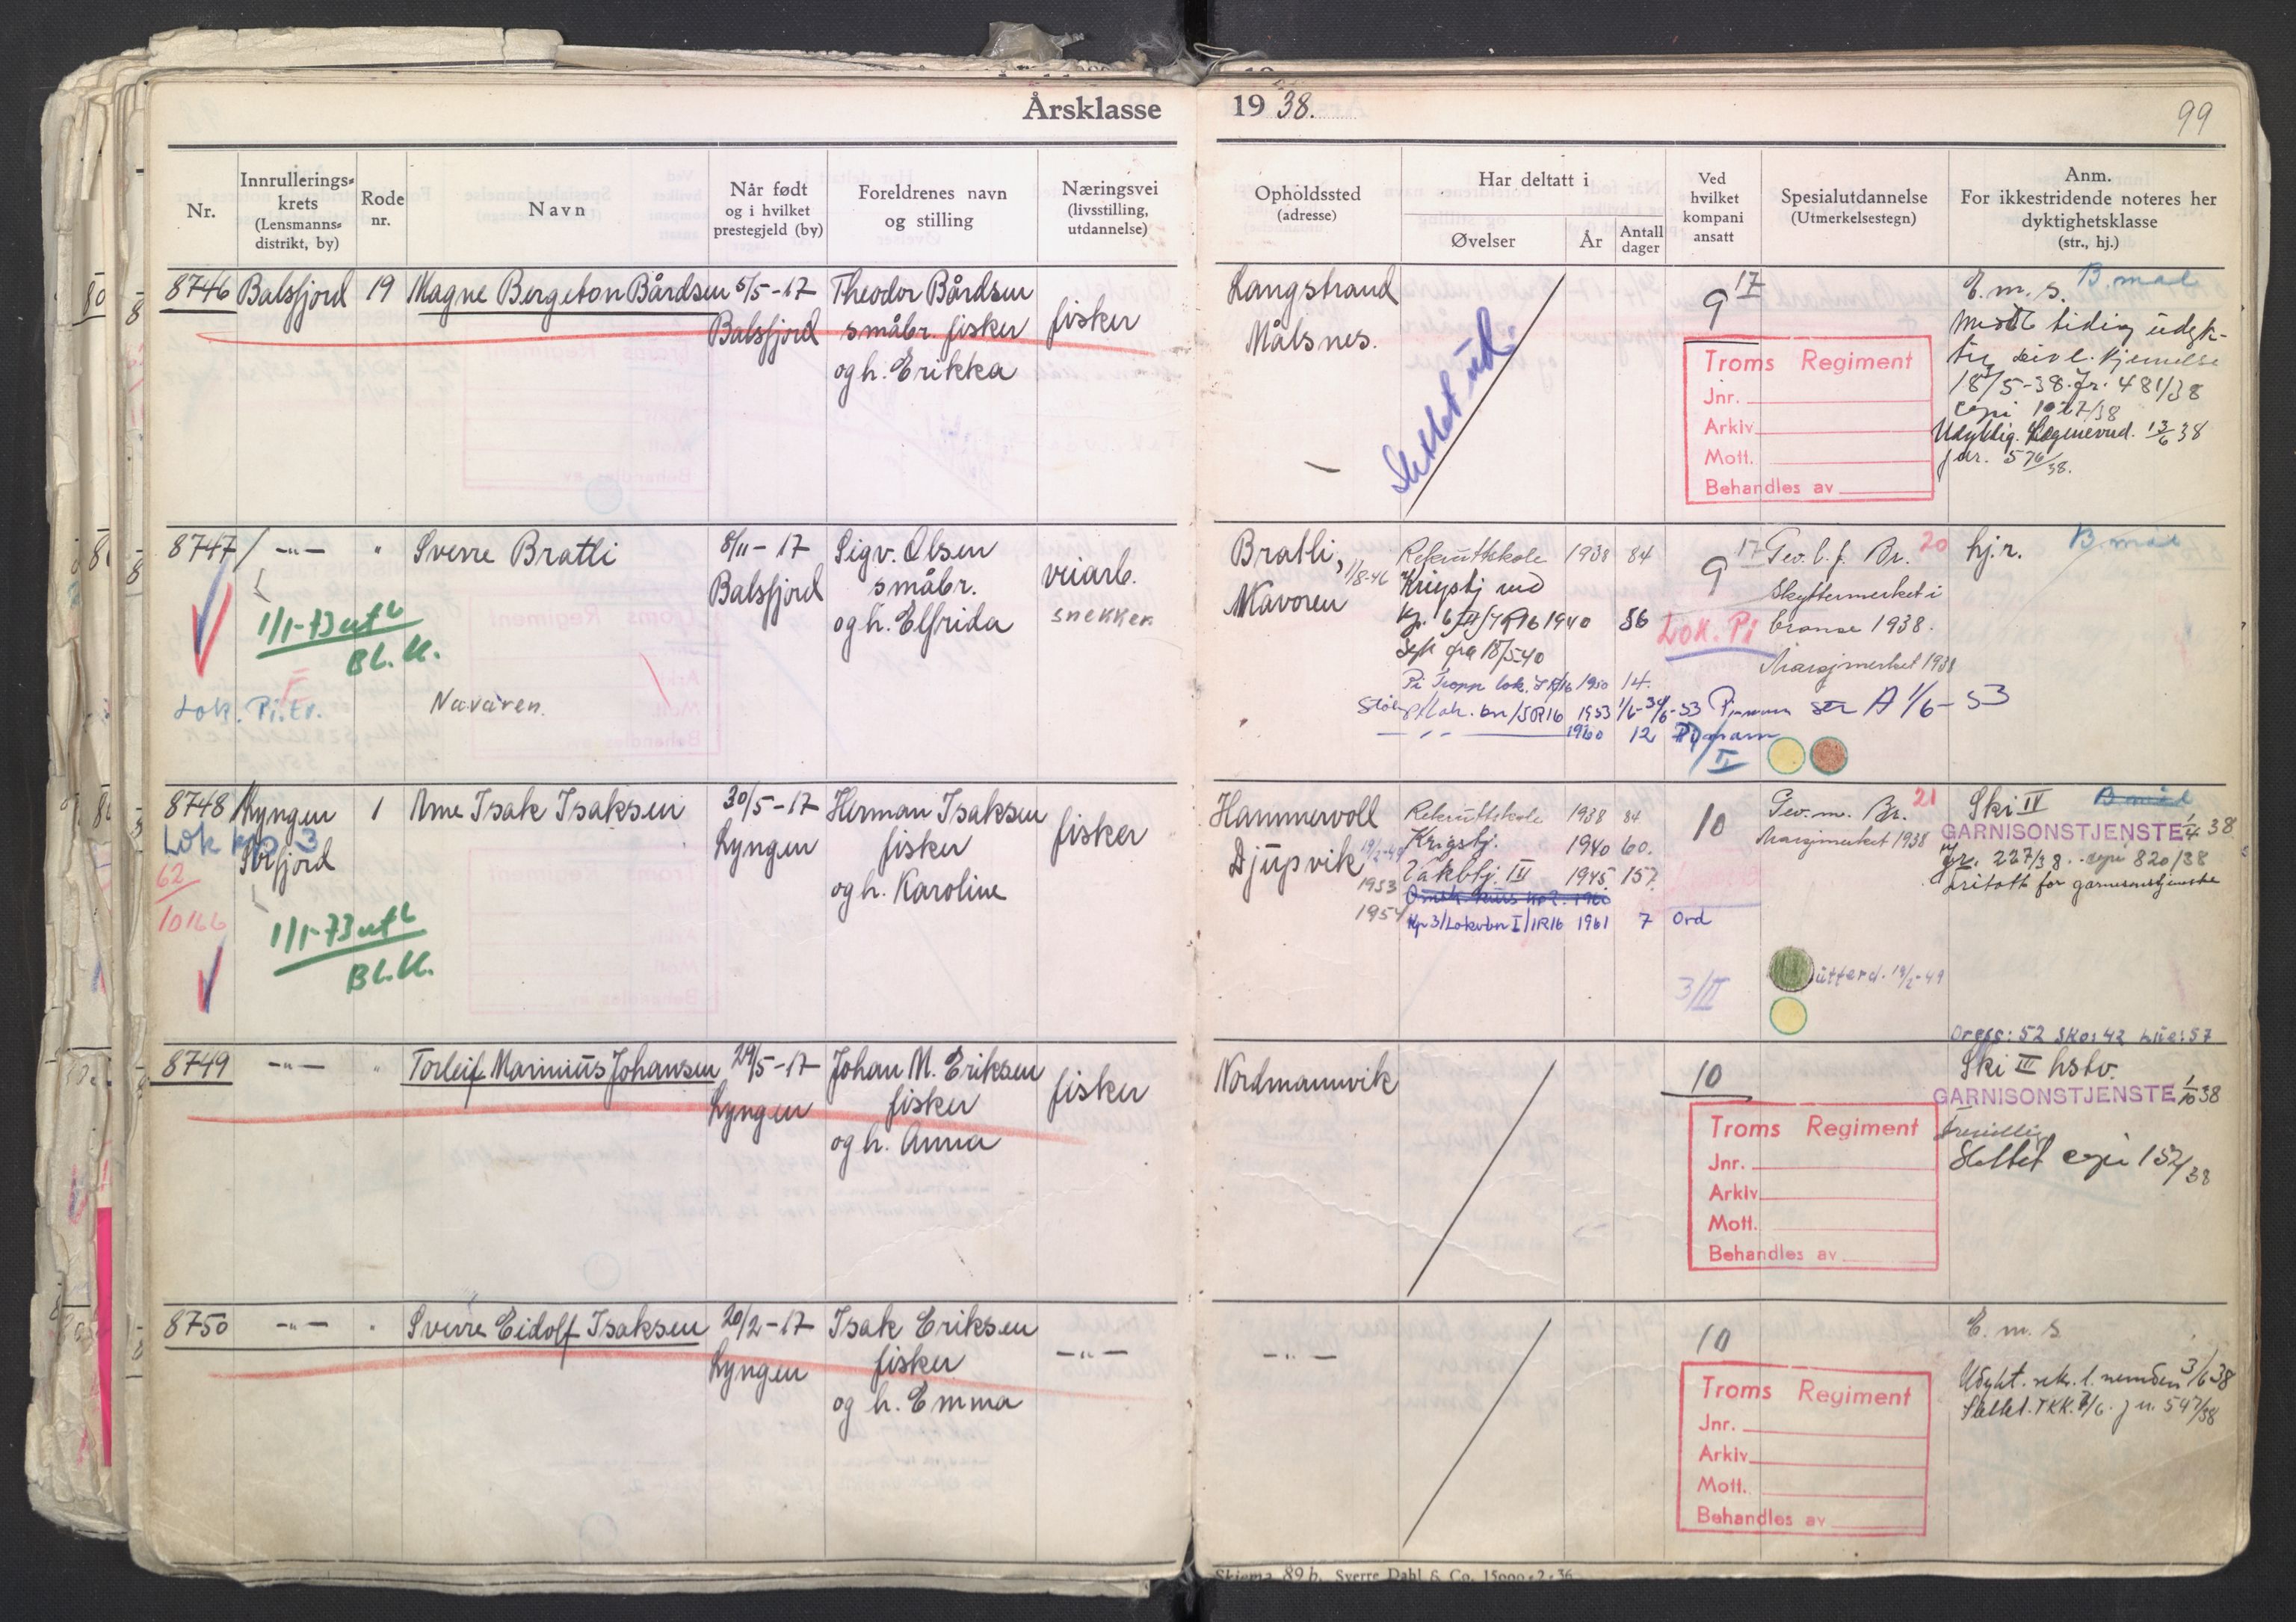 Årsklasse 1938.
99
Nr.
Innrullerings-
krets
(Lensmanns-
distrikt, by)
Rode
nr.
Navn
Når født
og i hvilket
prestegjeld (by)
Foreldrenes navn
og stilling
Næringsvei
(livsstilling,
utdannelse)
Opholdssted
(adresse)
Har deltatt i
Øvelser
År
Antall
dager
Ved
hvilket
kompani
ansatt
Spesialutdannelse
(Utmerkelsestegn)
Anm.
For ikkestridende noteres her
dyktighetsklasse
(str., hj.)
8746 Balsfjord 19 Magne Bergeton Bårdsen 5/5-17
Balsfjord
Theodor Bårdsen
småbr. fisker
og h. Erikka
fisker
Langstrand
Målsnes.
Slettet ud.
9 17
Troms Regiment
Jnr.
Arkiv
Mott.
Behandles av
E. m. s. B. mål
18/5-38. Jr. 481/38
copi 1027/38
Udyktig. 13/6 38
jnr. 576/38.
8747 / -"- " Sverre Bratli 8/11-17
Balsfjord
Sigv. Olsen
småbr.
og h. Elfrida
veiarb.
snekker
1/1-73 utl
Bl.K.
Lok. Pi.tr.
Navaren.
Bratli, 1/8-46
Mavoren
Rekruttskole 1938 84
Krigstj ved
1940 56
fra 18/5-40
Pi Tropp lok. IR16 1950 14.
1953 1/6-30/6-53 A 1/6-53
-"- 1960 12
9 17
Lok. Pi
II
Gev. l. f. Br. 20
Skyttermerket i
bronse 1938.
Marsjmerket 1938
hj.r. B. mål
8748 Lyngen 1 Arne Isak Isaksen 30/5-17
Lyngen
Herman Isaksen
fisker
og h. Karoline
fisker
Lok kp 3
Sørfjord
62
10166
1/1-73 utl
Bl.K.
Hammervoll
Djupvik 19/2-49
1953
1954
Rekruttskole 1938 84
Krigstj. 1940 60.
Vakttj. III 1945 157
Kp 3/Lokvbn I/IR16 1961 7 Ord
10
3/II
Gev. m. Br. 21
Marsjmerket 1938
utferd. 19/2-49
Ski IV B. mål
GARNISONSTJENSTE 1/4 38
jr. 227/38. copi 820/38
Fritatt for garnisonstjeneste
Dress: 52 Sko: 42 Lue: 57
8749 -"- " Torleif Marinius Johansen 29/5-17
Lyngen
Johan M. Eriksen
fisker
og h. Anna
fisker
Nordmannvik
10
Troms Regiment
Jnr.
Arkiv
Mott.
Behandles av
Ski III hstv.
GARNISONSTJENSTE 1/10 38
Frivillig
Slettet copi 152/38
8750 -"- " Sverre Eidolf Isaksen 20/2-17
Lyngen
Isak Eriksen
fisker
og h. Emma
-"-
-"-
10
Troms Regiment
Jnr.
Arkiv
Mott.
Behandles av
E. m. s
Udykt. rekr. l. nemnden 3/6 38
Slettet. TKK. 7/6. jn. 547/38
Skjema 89 b. Sverre Dahl & Co. 15000-2-36